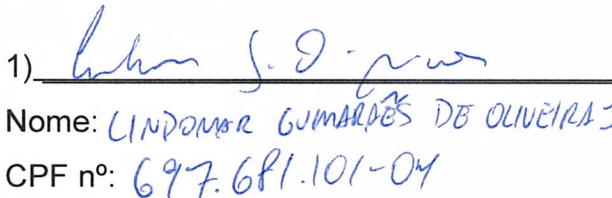 1)
Nome: LINDOMAR GUIMARÃES DE OLIVEIRA
CPF nº: 697.681.101-04